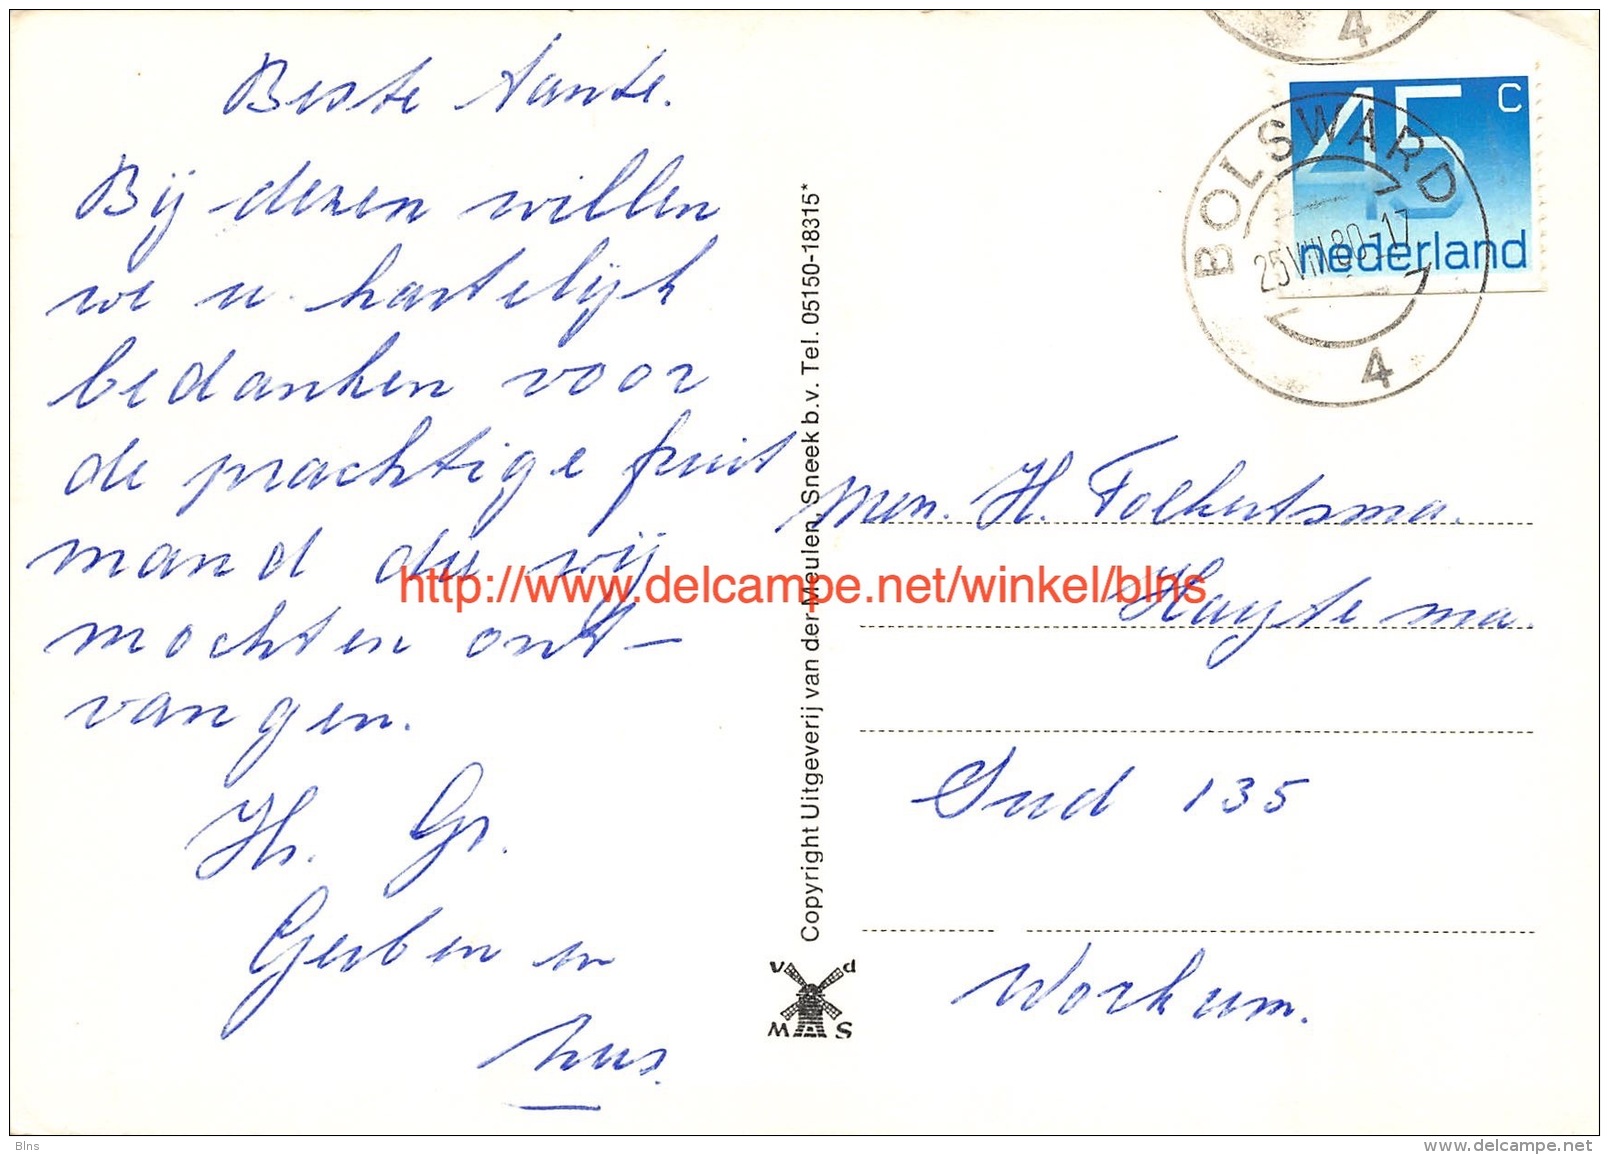 Beste tante.
Bij dezen willen
we u hartelijk
bedanken voor
de prachtige fruit
mand die wij
mochten ont-
vangen.
Hr. Gr.
Gerben en
hus.
Copyright Uitgeverij van der Meulen, Sneek b.v. Tel. 05150-18315*
V D
M S
4
45 c
nederland
BOLSWARD
25 VIII 80-17
4
Men. H. Folkertsma.
Huytema.
Sud 135
Workum.
http://www.delcampe.net/winkel/blns
Blns
www.delcampe.net